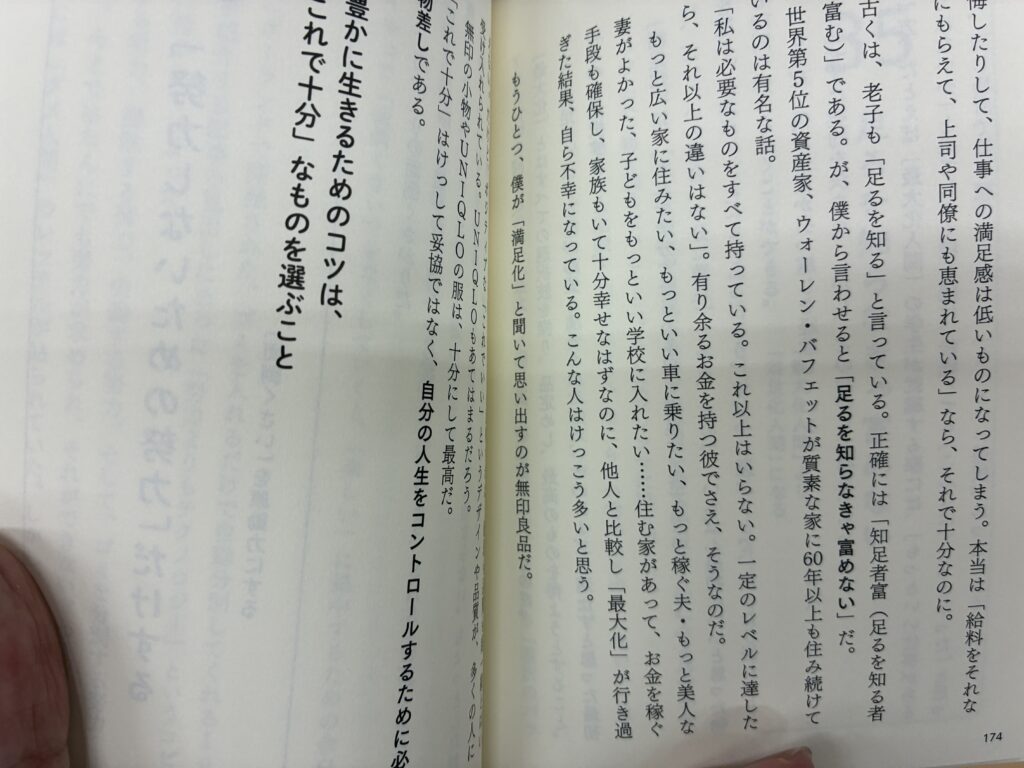 悔したりして、仕事への満足感は低いものになってしまう。本当は「給料をそれな
にもらえて、上司や同僚にも恵まれている」なら、それで十分なのに。
古くは、老子も「足るを知る」と言っている。正確には「知足者富（足るを知る者
富む）」である。が、僕から言わせると「足るを知らなきゃ富めない」だ。
世界第5位の資産家、ウォーレン・バフェットが質素な家に60年以上も住み続けて
いるのは有名な話。
「私は必要なものをすべて持っている。これ以上はいらない。一定のレベルに達した
ら、それ以上の違いはない」。有り余るお金を持つ彼でさえ、そうなのだ。
もっと広い家に住みたい、もっといい車に乗りたい、もっと稼ぐ夫・もっと美人な
妻がよかった、子どもをもっといい学校に入れたい……住む家があって、お金を稼ぐ
手段も確保し、家族もいて十分幸せなはずなのに、他人と比較し「最大化」が行き過
ぎた結果、自ら不幸になっている。こんな人はけっこう多いと思う。
もうひとつ、僕が「満足化」と聞いて思い出すのが無印良品だ。
「これでいい」というデザインや品質が、多くの人に
受け入れられている。UNIQLOもあてはまるだろう。
無印の小物やUNIQLOの服は、十分にして最高だ。
「これで十分」はけっして妥協ではなく、自分の人生をコントロールするために必
物差しである。
豊かに生きるためのコツは、
これで十分」なものを選ぶこと
174